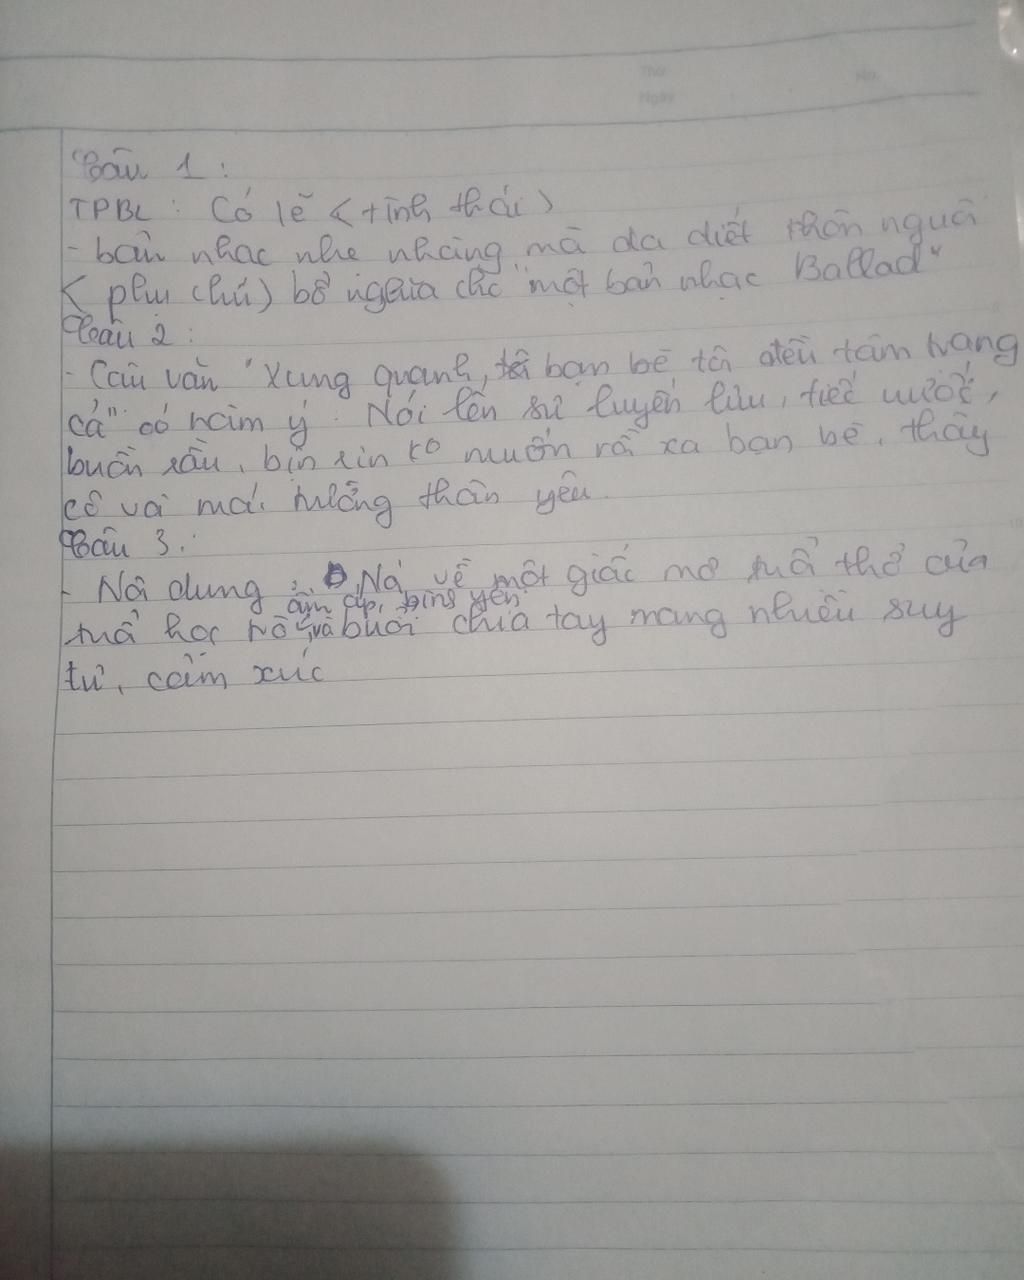 Thứ No.
Ngày
Câu 1:
TPBL: Có lẽ <tình thái>
- bản nhạc nhẹ nhàng mà da diết thôn người
< phụ chú) bổ nghĩa cho "một bản nhạc Ballad"
Câu 2:
- Câu văn "Xung quanh, bạn bè tôi đều tâm trạng
cả" có hàm ý. Nói lên sự luyến lưu, tiếc nuối,
buồn rầu, bịn rịn ko muốn rời xa bạn bè, thầy
cô và mái trường thân yêu.
Câu 3:
- Nội dung: Nói về một giấc mơ tuổi thơ của
ấm áp, bình yên
tuổi học trò và buổi chia tay mang nhiều suy
tư, cảm xúc